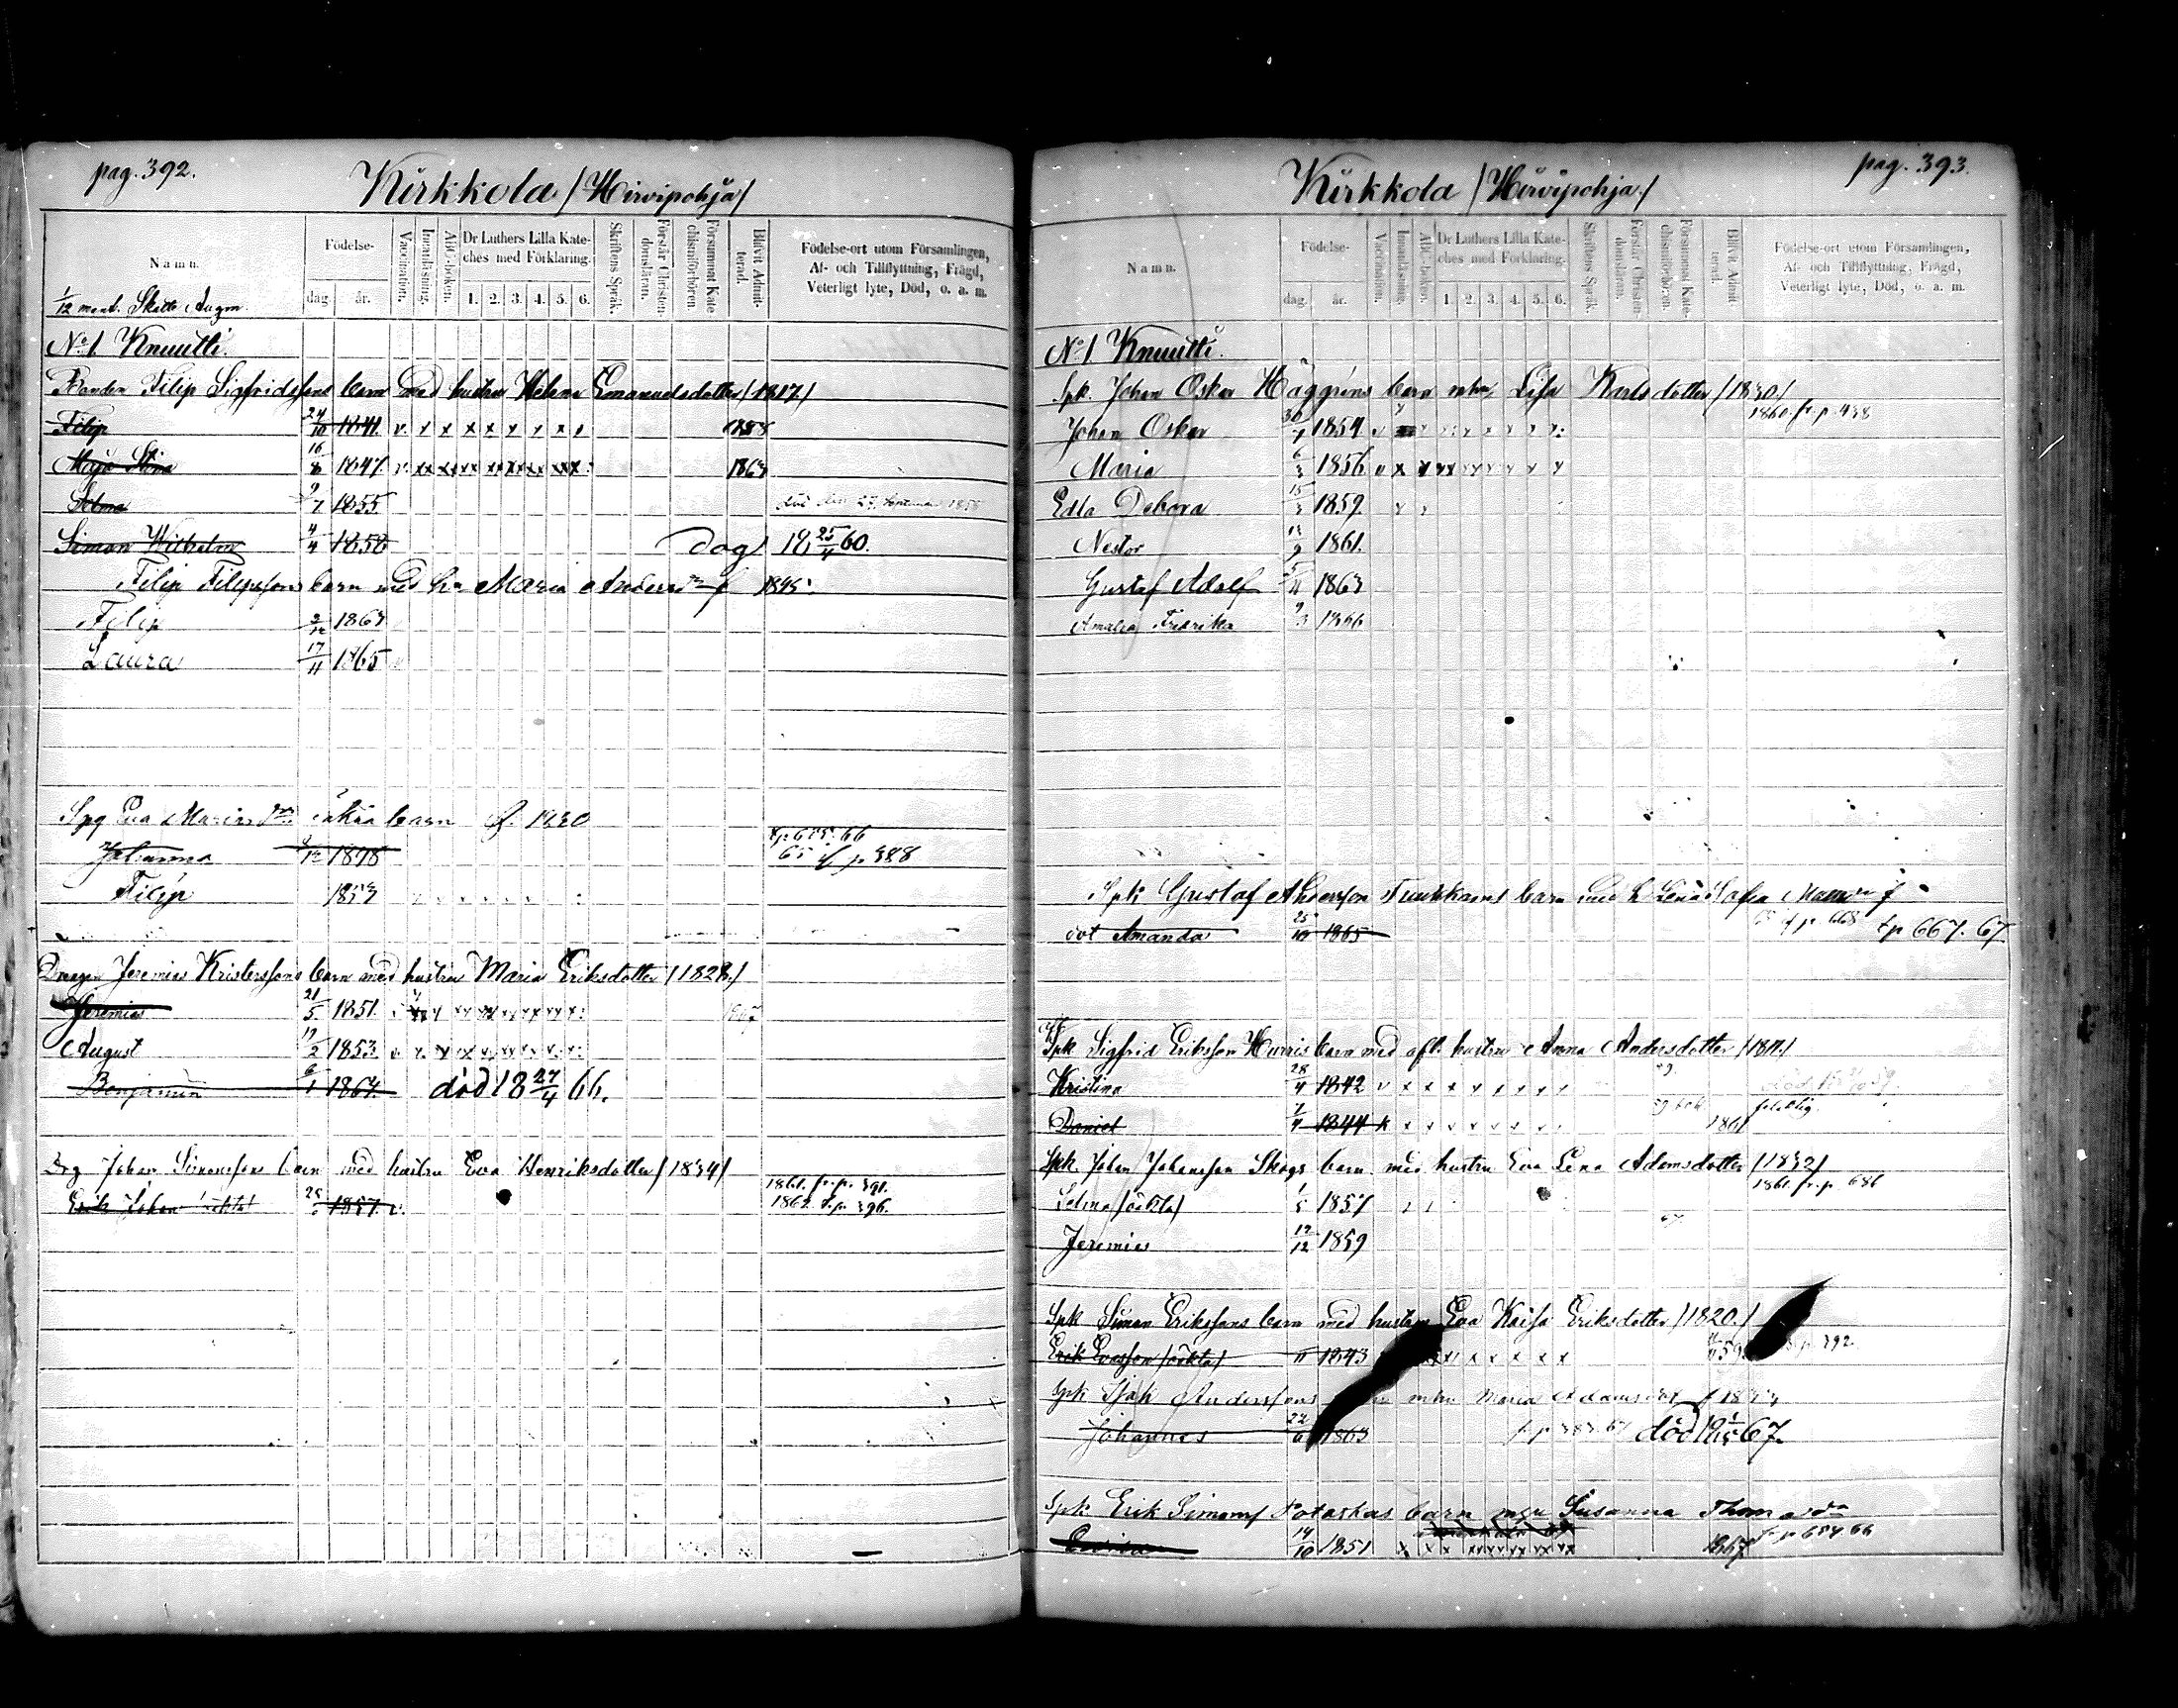 pag. 392.
Kirkkola /Hirvipohja/
Namn.
Födelse-
dag.
år.
Vaccination.
Innanläsning.
ABC-boken.
Dr Luthers Lilla Kate-
ches med Förklaring.
1. 2. 3. 4. 5. 6.
Skriftens Språk.
Förstår Christen-
domsläran.
Försummat Kate-
chismiförhören.
Blifvit Admit-
terad.
Födelse-ort utom Församlingen,
Af- och Tillflyttning, Frägd,
Veterligt lyte, Död, o. a. m.
1/12 mant. Skatte Augm.
No 1 Knuutti.
Bonden Filip Sigfridssons barn med hustru Helena Emanuelsdotter /1817./
Filip 24/10 1841. v x x x x x x x x 1858
Maja Stina 16/8 1847. v xx xx xx xx xx xx xx xx 1863
Selma 9/7 1855 död den 27 September 1858
Simon Wilhelm 4/4 1858 dog 18 25/4 60.
Filip Filipssons barn med hu Maria Andersdr f 1845.
Filip 2/12 1863
Laura 17/11 1865 v
Spg Eva barn f. 1820
Johanna /12 1848 65 f p 388
Filip 1853
Drengen Jeremias Kristerssons barn med hustru Maria Eriksdotter /1828./
Jeremias 21/5 1851. 1867
August 17/2 1853. v x xx xx xx xx xx x x
Benjamin 6/1 1864. död 18 27/4 66.
Drg Johan Simonssons barn med hustru Eva Henriksdotter /1834/
Erik Johan oäkta 1857. v. 1861. fr. p. 391.
1862. t. p. 396.
pag. 393.
Kirkkola /Hirvipohja/
Namn.
Födelse-
dag.
år.
Vaccination.
Innanläsning.
ABC-boken.
Dr Luthers Lilla Kate-
ches med Förklaring.
1. 2. 3. 4. 5. 6.
Skriftens Språk.
Förstår Christen-
domsläran.
Försummat Kate-
chismiförhören.
Blifvit Admit-
terad.
Födelse-ort utom Församlingen,
Af- och Tillflyttning, Frägd,
Veterligt lyte, Död, o. a. m.
No 1 Knuutti.
Spk. Johan Oskar Häggrens barn mhu Lisa Karlsdotter /1830/
1860. fr. p. 438
Johan Oskar 30/7 1854. v x x x x x x x
Maria 6/3 1856. v x x xx xx x x x x
Edla Debora 15/3 1859. x x
Nestor 12/9 1861.
Gustaf Adolf 5/11 1863
Amalia Fredrika 9/3 1866
Spk Gustaf Andersson barn med h Lena Sofia
dot Amanda 25/10 1865 f p 668 tp 667. 67.
Spk Sigfrid Eriksson Hurris barn med afl. hustru Anna Andersdotter /1811./
Kristina 28/4 1842 v x x x x x x x x
Daniel 7/4 1844 x x x x x x x x 1861
Spk. Johan Johansson Skogs barn med hustru Eva Lena Adamsdotter /1832/
1861. fr. p. 686
Selma /oäkta/ 1/5 1857
Jeremias 12/12 1859
Spk Simon Erikssons barn med hustru Eva Kaisa Eriksdotter /1820./
Erik Evasson /oäkta/ 11 1843 x x x x x x p 392
Spk Isak Anderssons mhu Maria Adamsdot
Johannes 22/6 1863 död 18 67.
Spk Erik Simons Potaskas barn mhu Susanna Thomasdr
14/10 1851 x x x xx xx xx xx xx 1867 fr p 654 66